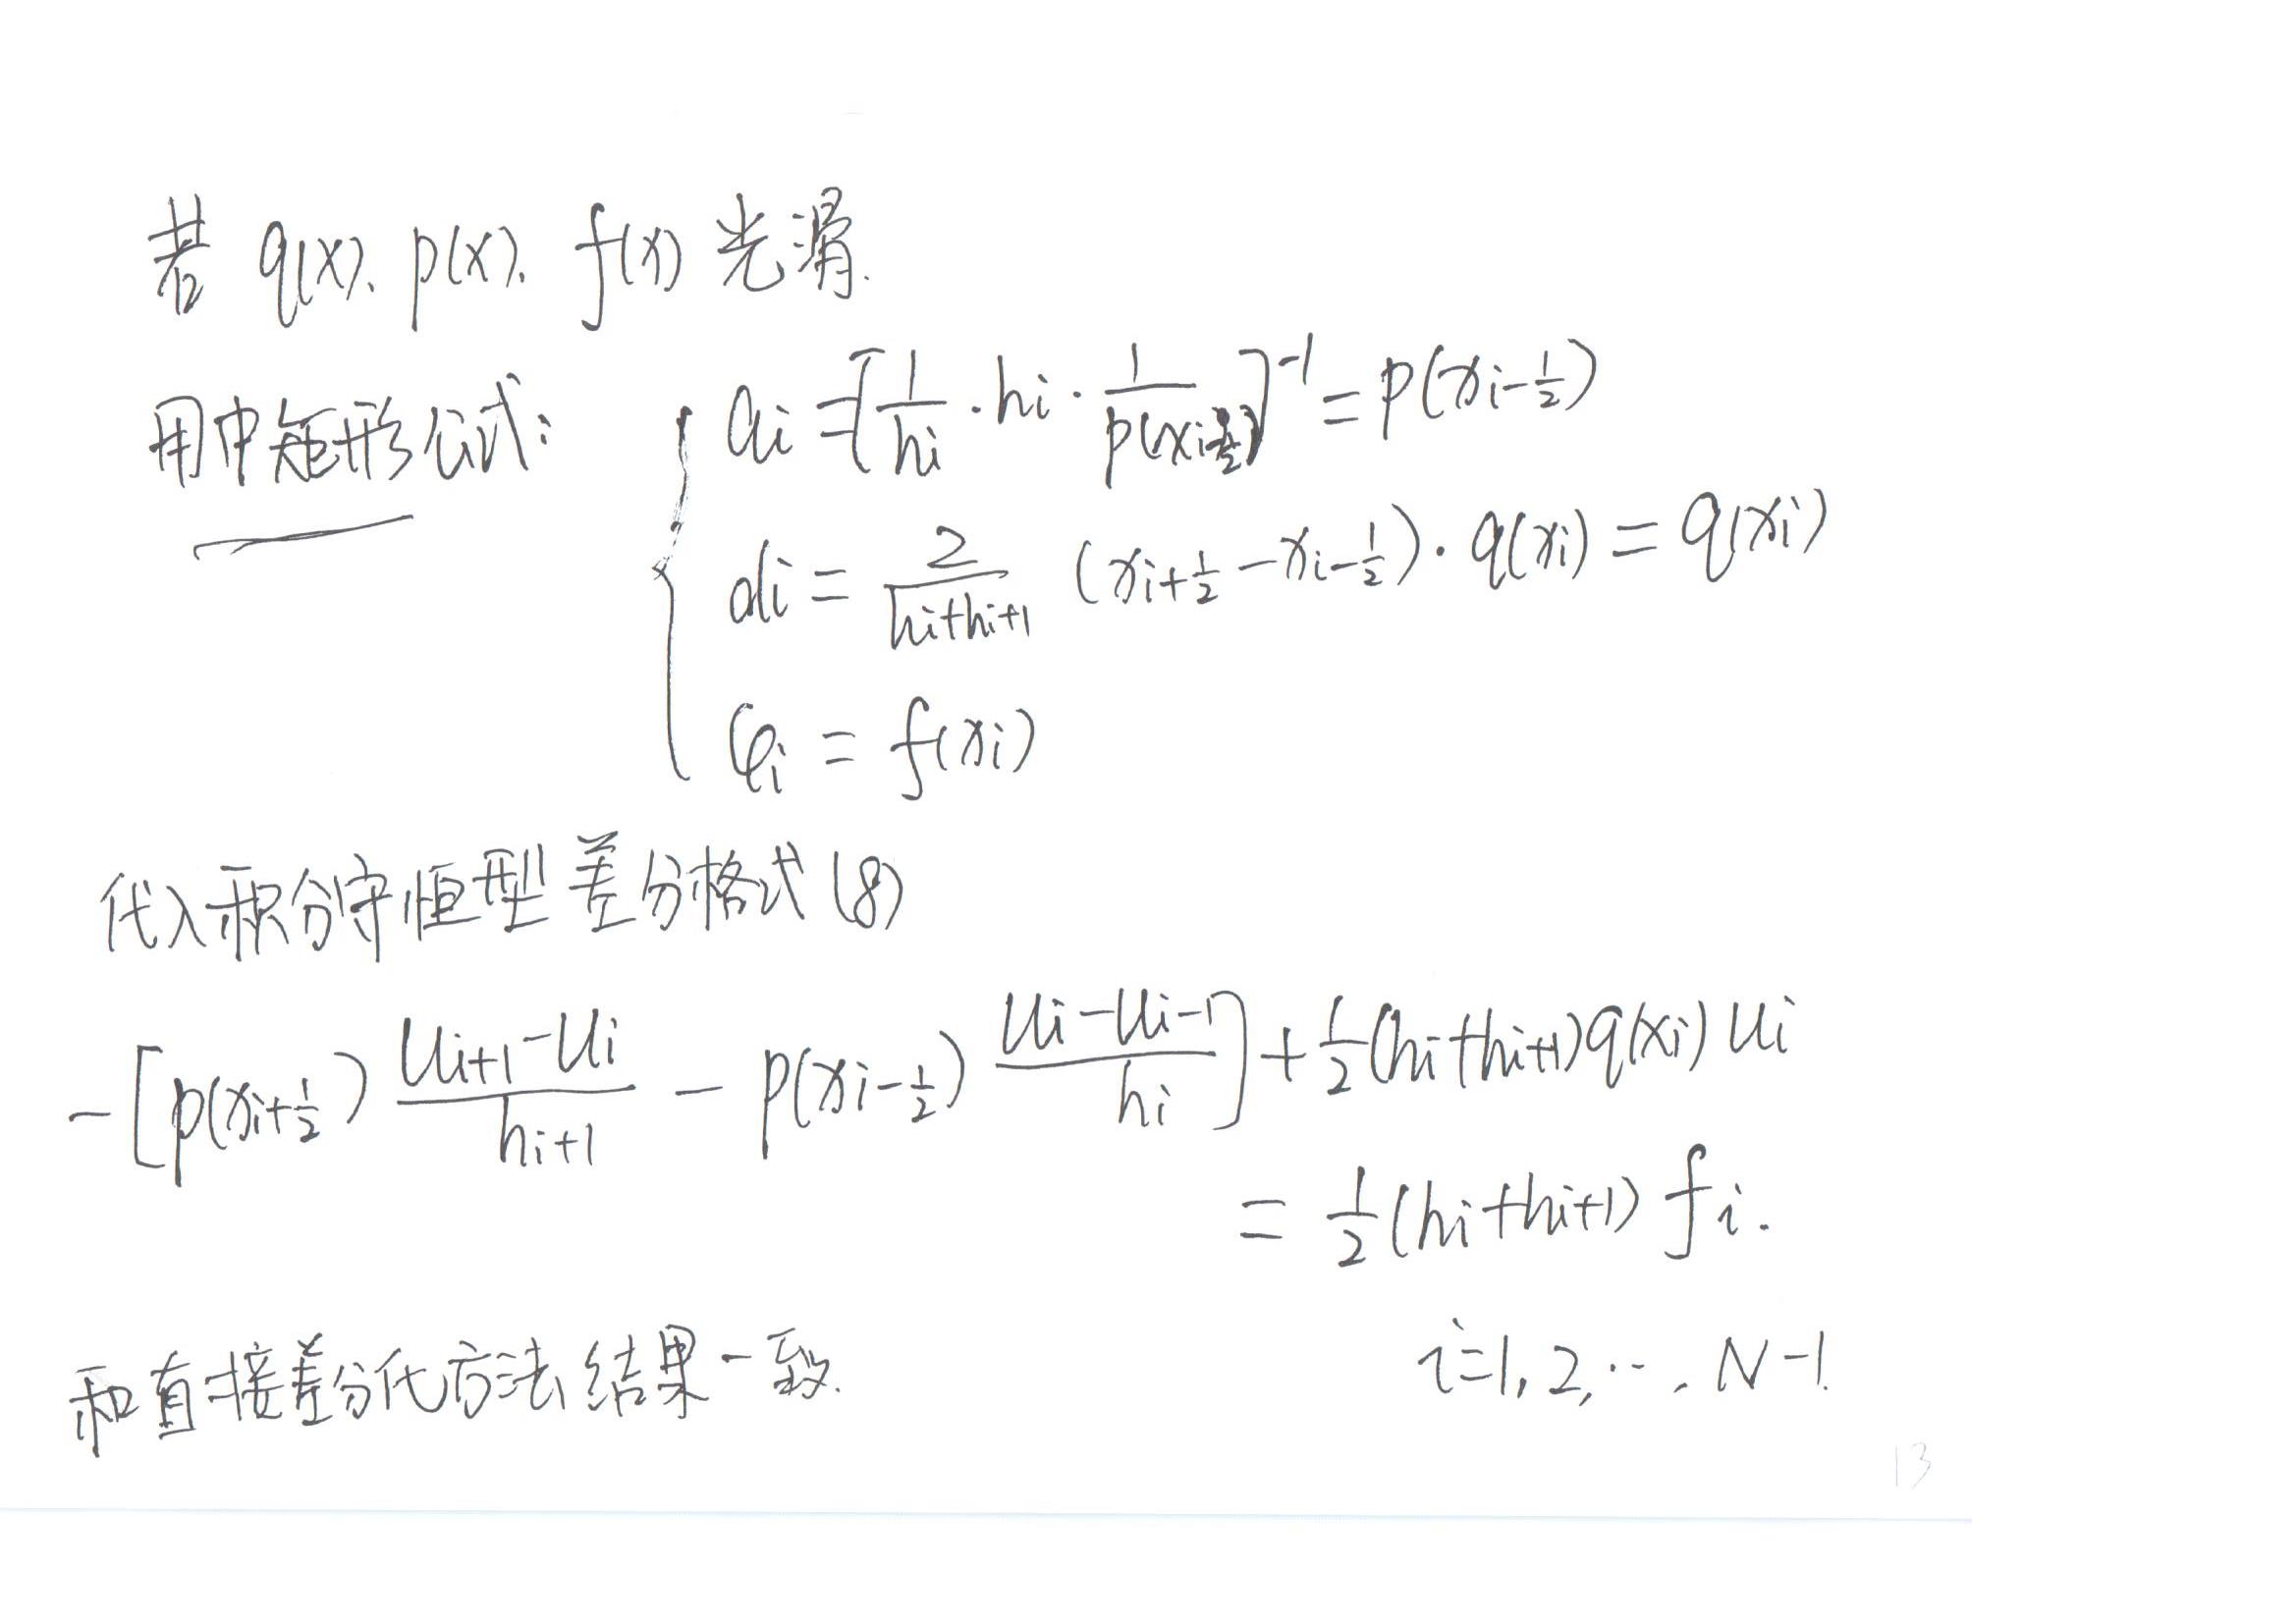 若 q(x)、p(x)、f(x) 光滑.
用中矩形公式: a_i = [1/h_i · h_i · 1/p(x_{i-1/2})]^{-1} = p(x_{i-1/2})
d_i = 2/(h_i+h_{i+1}) (x_{i+1/2} - x_{i-1/2}) · q(x_i) = q(x_i)
φ_i = f(x_i)
代入积分守恒型差分格式(8)
-[p(x_{i+1/2}) (u_{i+1}-u_i)/h_{i+1} - p(x_{i-1/2}) (u_i-u_{i-1})/h_i] + 1/2(h_i+h_{i+1})q(x_i)u_i
= 1/2(h_i+h_{i+1}) f_i.
i=1,2,…,N-1.
和直接差分代方法结果一致.
13